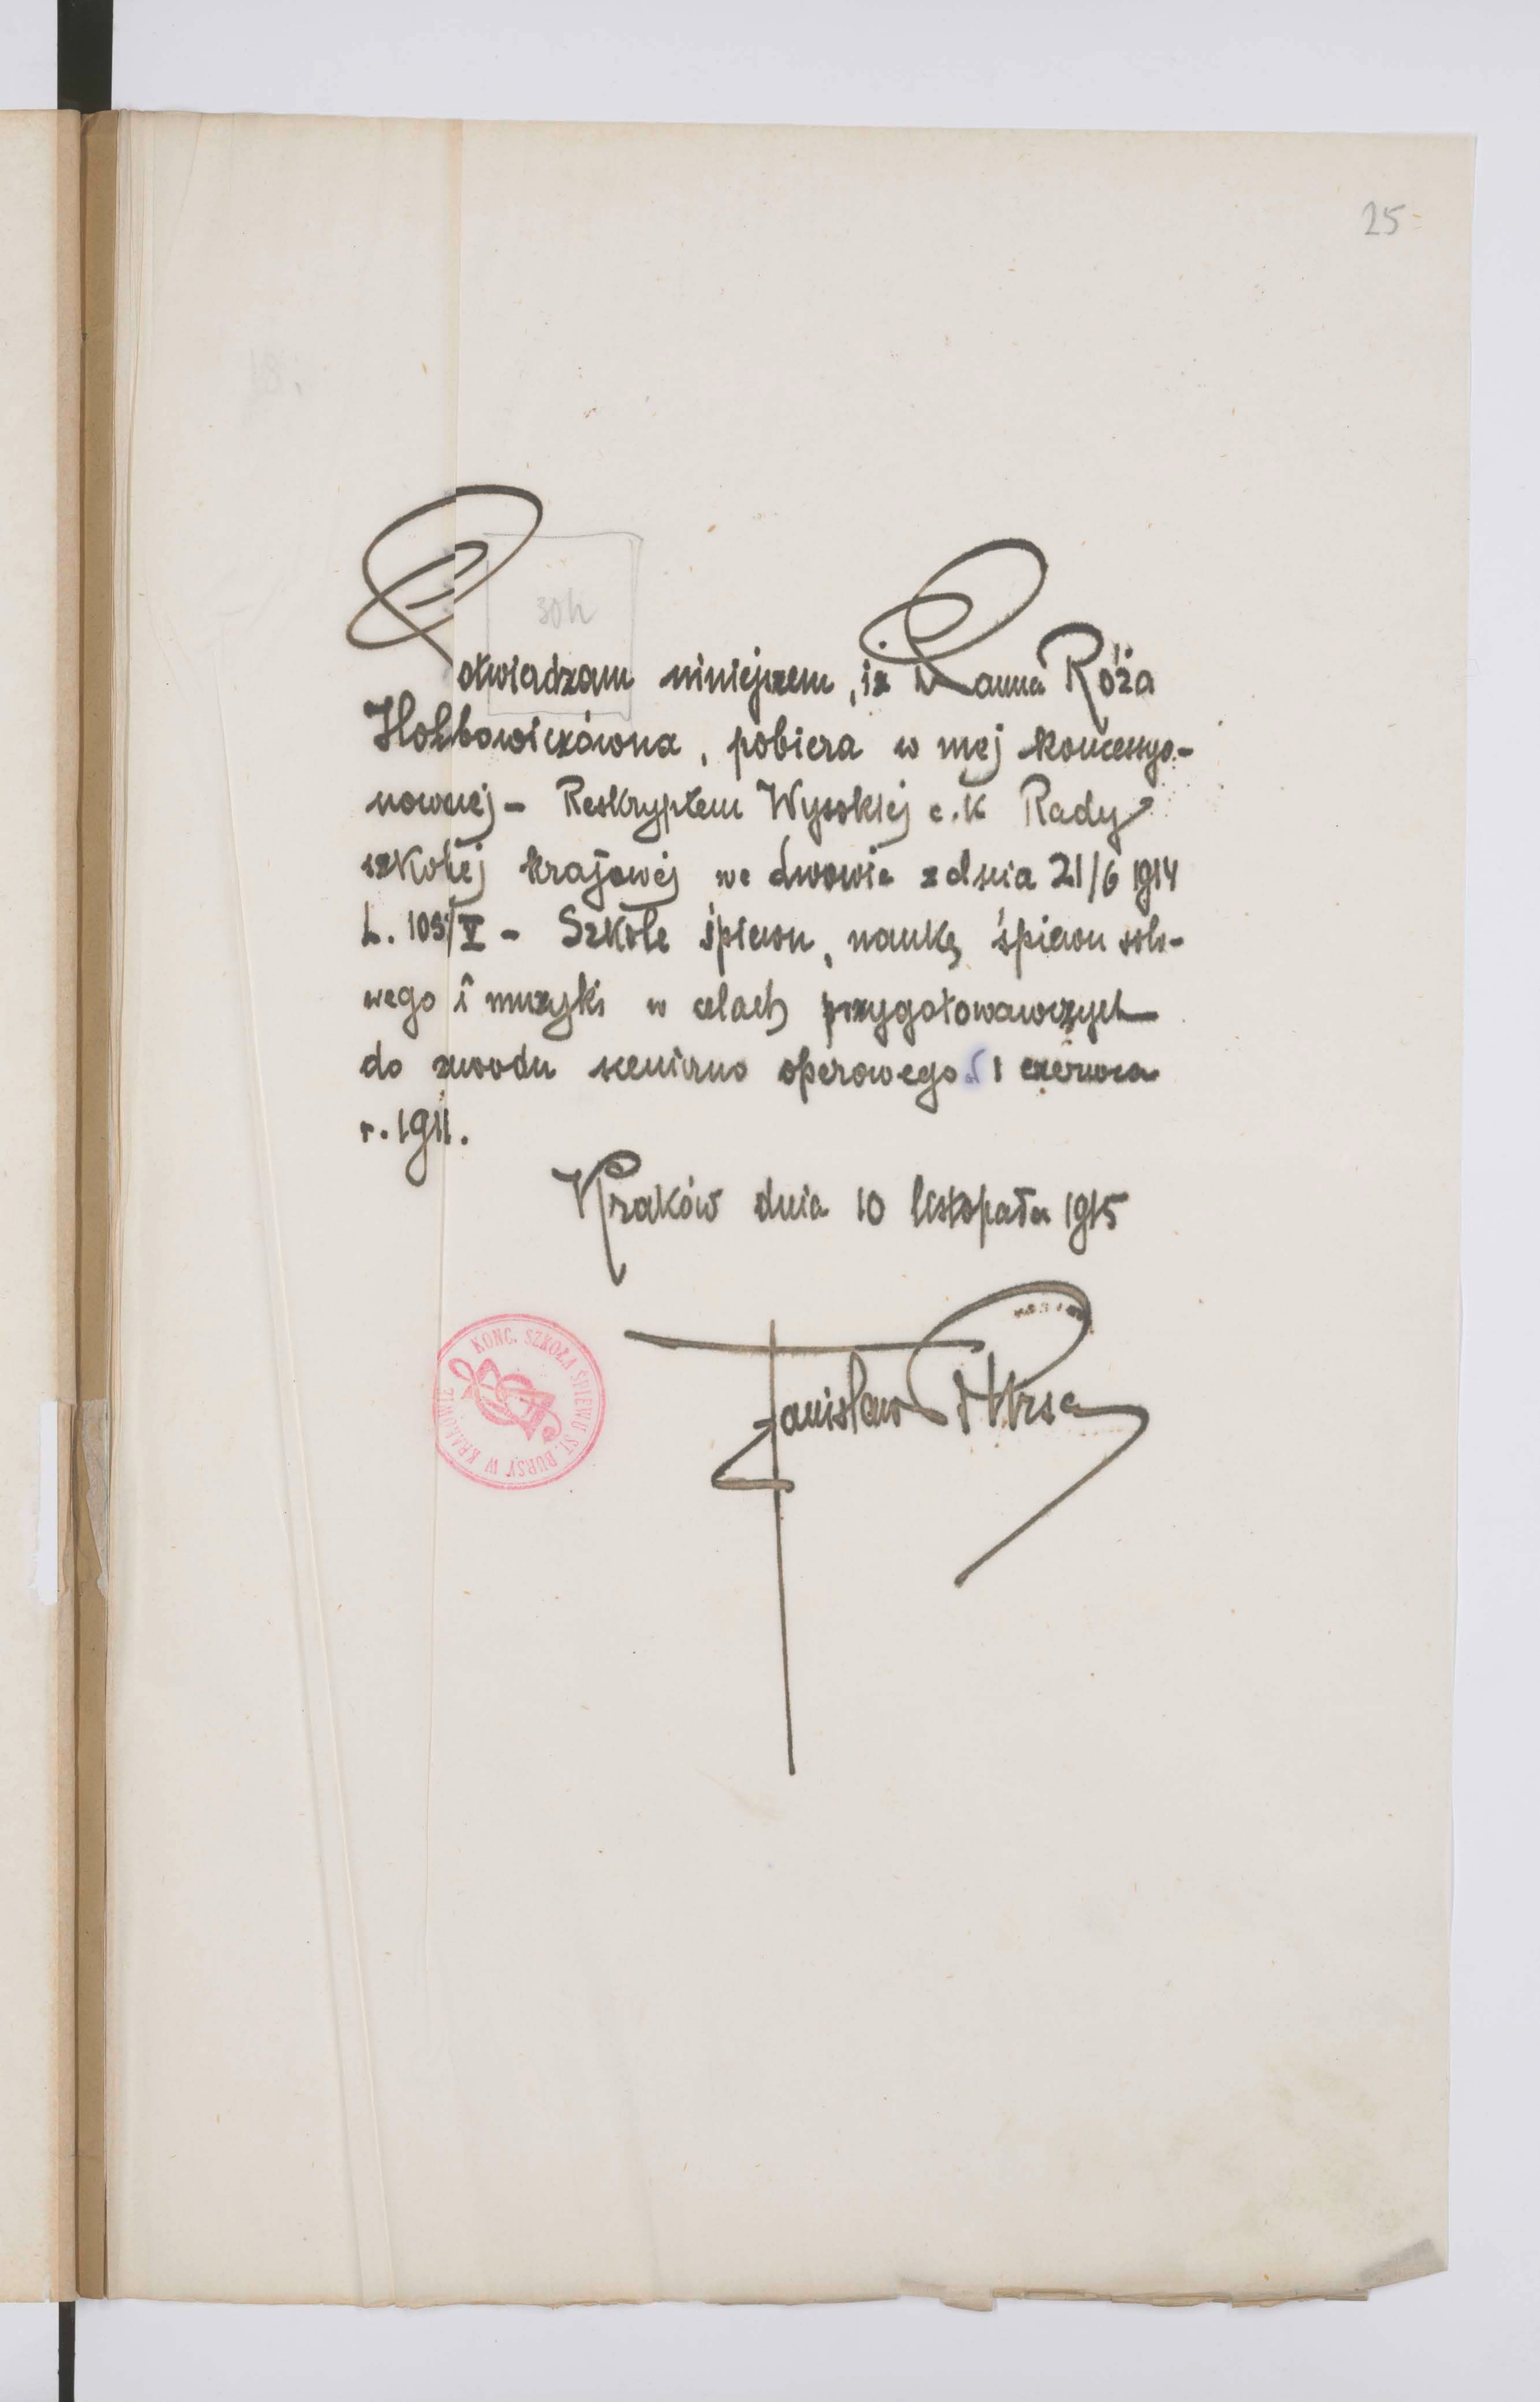 25
30h
Potwiadzam niniejszem, iż Panna Róża
Hołubowiczówna, pobiera w mej koncessyo-
nowanej - Reskryptem Wysokiej c.k Rady
szkolej krajowej we Lwowie z dnia 21/6 1914
L. 105/V - Szkole śpiewu, naukę śpiewu solo-
wego i muzyki w celach przygotowawczych
do zawodu sceniczno operowego od 1 czerwca
r. 1911.
Kraków dnia 10 listopada 1915
KONC. SZKOŁA ŚPIEWU ST. BURSY W KRAKOWIE
Stanisław Bursa